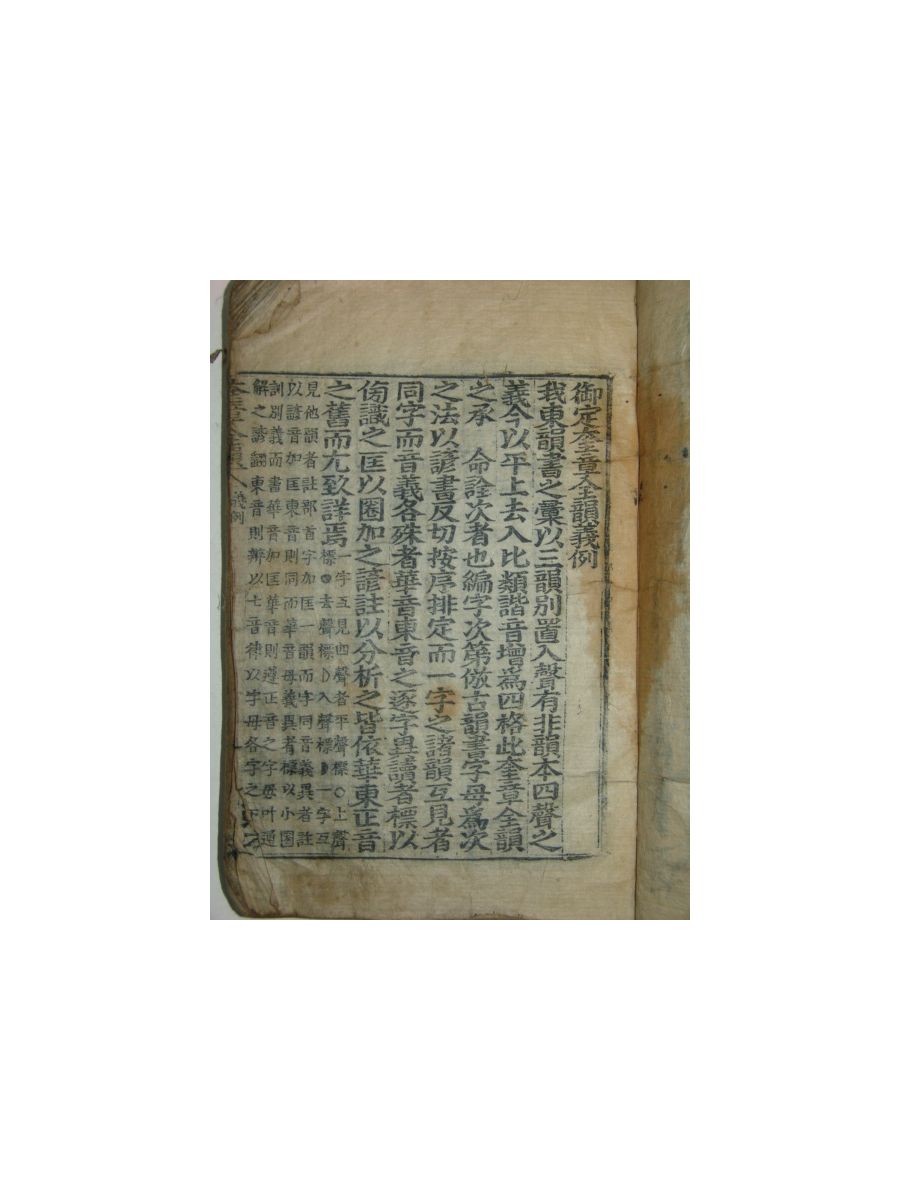 御定奎章全韻義例
我東韻書之彙以三韻別置入聲有非韻本四聲之
義今以平上去入比類諧音增爲四格此奎章全韻
之承 命詮次者也編字次第倣古韻書字母爲次
之法以諺書反切按序排定而一字之諸韻互見者
同字而音義各殊者華音東音之逐字異讀者標以
傍識之匡以圈加之諺註以分析之皆依華東正音
之舊而尤致詳焉
一字互見四聲者平聲標○上聲
標●去聲標◗入聲標◗一字互
見他韻者註部首字加匡一韻而字同音義異者註
以諺音加匡東音則同而華音母義異者標以小圈
訓別義而書華音加匡華音則遵正音之字母叶通
解之諺翻東音則辨以七音律以字母各字之下
奎章全韻 義例